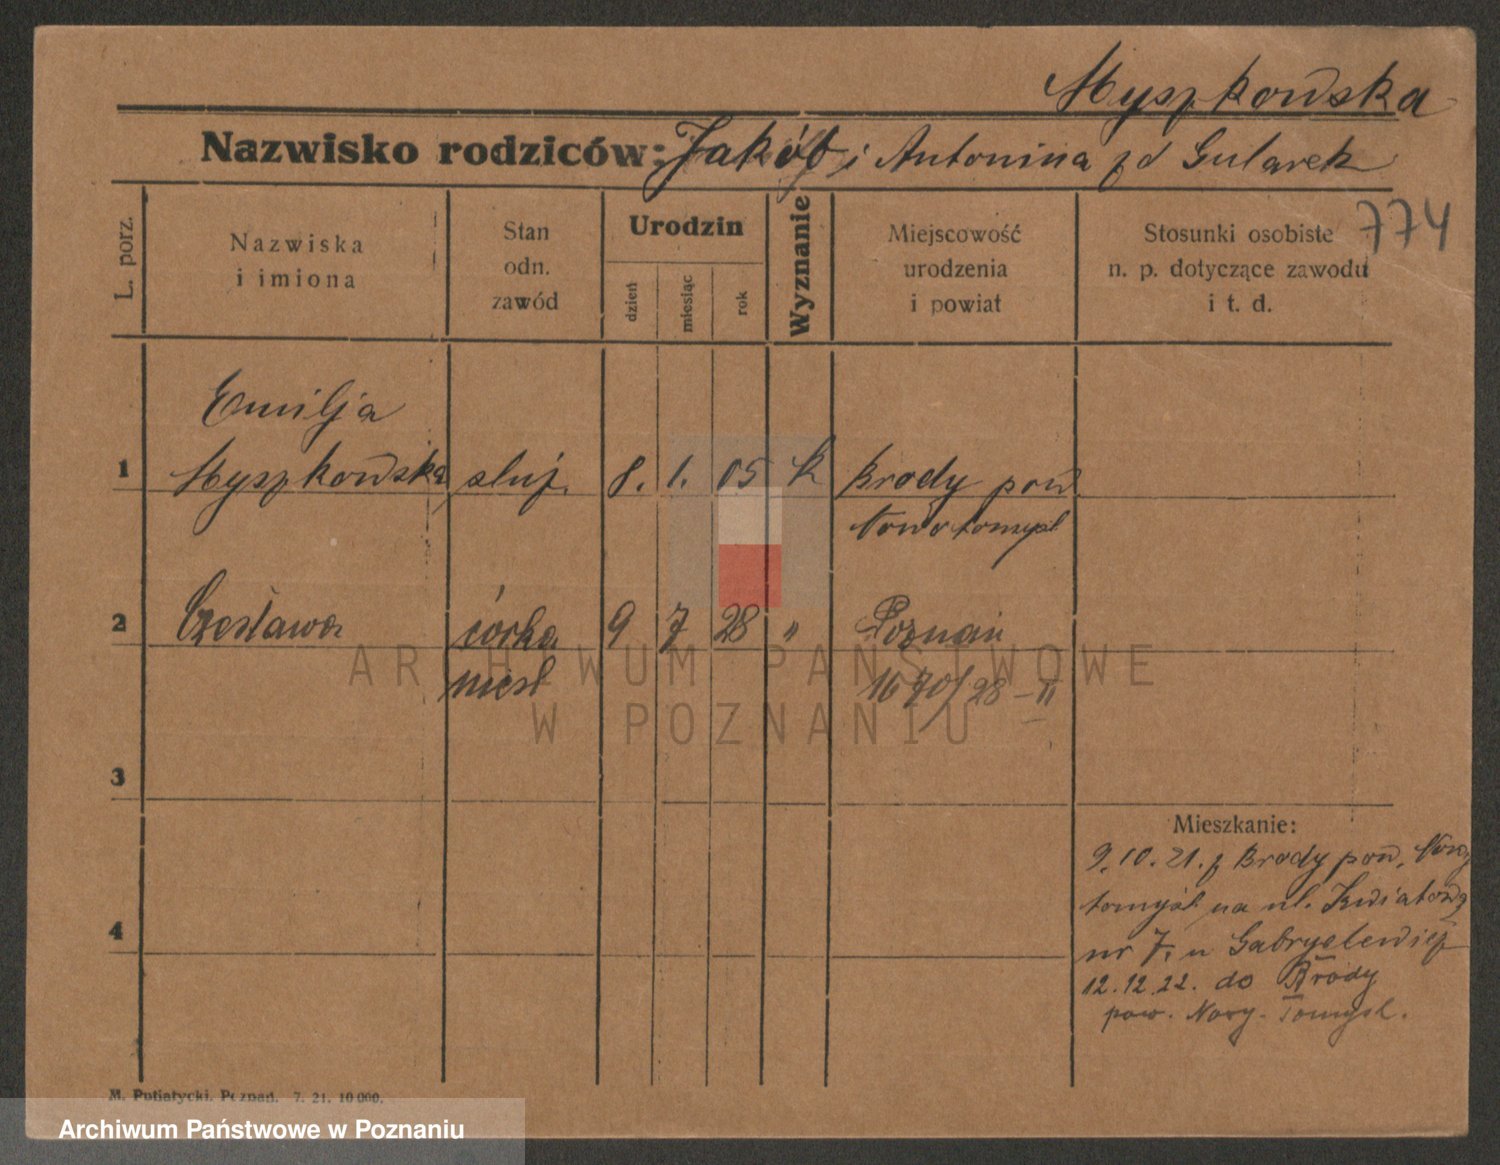 Myszkowska
Nazwisko rodziców: Jakób i Antonina zd Gularek
774
L. porz.
Nazwiska
i imiona
Stan
odn.
zawód
Urodzin
dzień
miesiąc
rok
Wyznanie
Miejscowość
urodzenia
i powiat
Stosunki osobiste
n. p. dotyczące zawodu
i t. d.
Emilja
1 Myszkowska służ. 8. 1. 05 k Brody pow
Nowotomysl
2 Czesława córka 9 7 28 " Poznań
nieśl 1670/28 – II
ARCHIWUM PAŃSTWOWE
W POZNANIU
3
Mieszkanie:
9.10.21. z Brody pow. Nowy
tomyśl na ul. Kwiatową
4
nr 7. u
12.12.22. do Brody
pow. Nowy-Tomyśl.
M. Putiatycki, Poznań. 7. 21. 10 000.
Archiwum Państwowe w Poznaniu